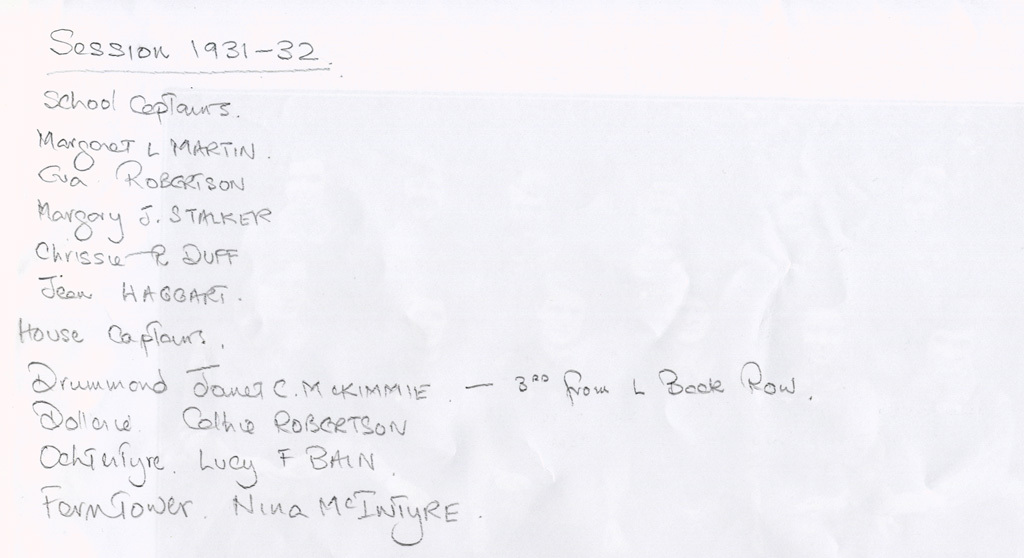 Session 1931-32.
School Captains.
Margaret L MARTIN.
Eva ROBERTSON
Margory J. STALKER
Chrissie R DUFF
Jean HAGGART.
House Captains.
Drummond Janet C. McKIMMIE. — 3RD from L Back Row.
Dollerie. Cathie ROBERTSON
Ochtertyre. Lucy F BAIN.
Ferntower. Nina McINTYRE.